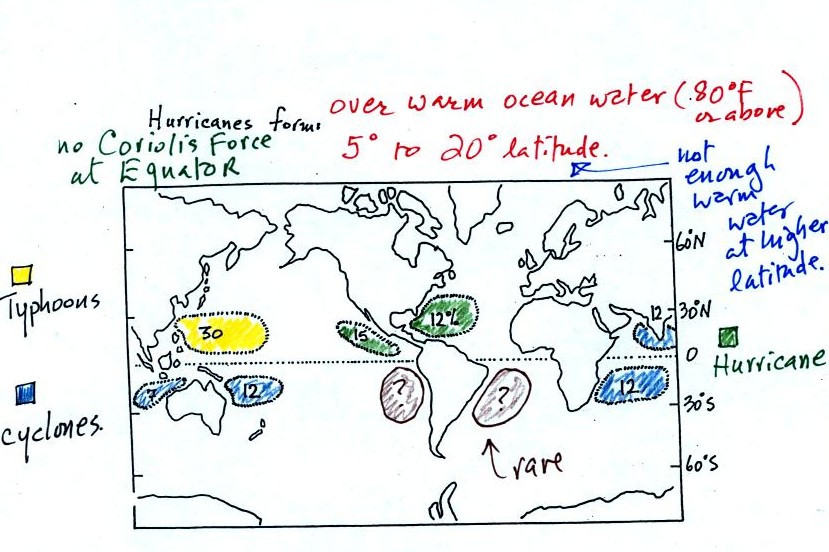 Hurricanes form:
over warm ocean water (80°F
or above)
no Coriolis Force
at Equator
5° to 20° latitude.
not
enough
warm
water
at higher
latitude.
60°N
Typhoons
30
15
12%
12
30°N
0
Hurricane
cyclones.
7
12
?
?
12
30°S
rare
60°S